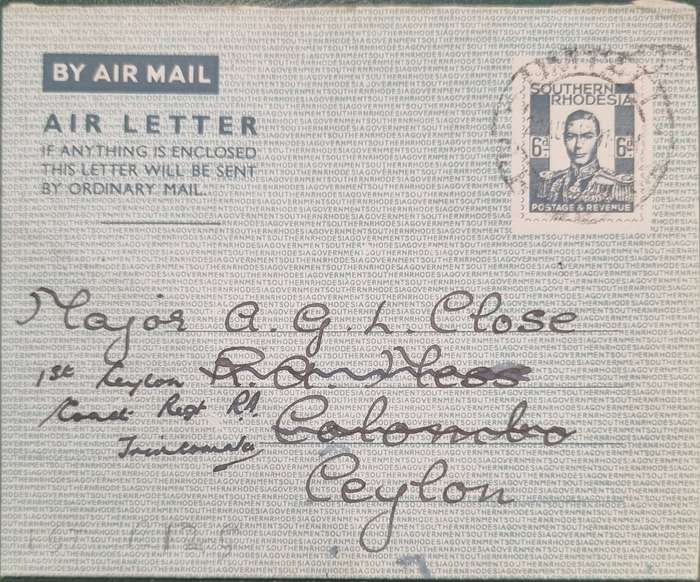 BY AIR MAIL
AIR LETTER
IF ANYTHING IS ENCLOSED
THIS LETTER WILL BE SENT
BY ORDINARY MAIL.
SOUTHERN
RHODESIA
6d 6d
POSTAGE & REVENUE
Major A. G. L. Close
R.A. Mess
1st Ceylon
Coast Regt RA
Colombo
Trincomalee
Ceylon